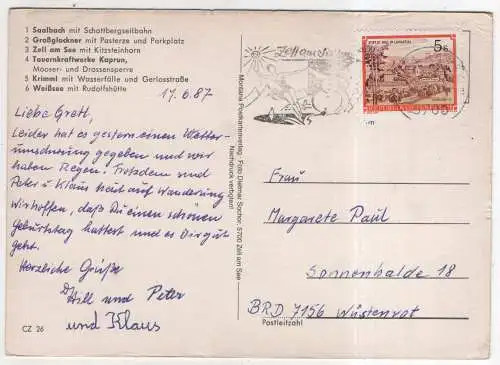 1 Saalbach mit Schattbergseilbahn
2 Großglockner mit Pasterze und Parkplatz
3 Zell am See mit Kitzsteinhorn
4 Tauernkraftwerke Kaprun,
Mooser- und Drossensperre
5 Krimml mit Wasserfälle und Gerlosstraße
6 Weißsee mit Rudolfshütte
17.6.87
Liebe Gretl,
Leider hat es gestern einen Wetter-
umschwung gegeben und wir
haben Regen. Trotzdem sind
Peter u Klaus heut auf Wanderung
Wir hoffen, daß Du einen schönen
Geburtstag hattest und es Dir gut
geht.
Herzliche Grüße
Will und Peter
und Klaus
CZ 26
Montana Postkartenverlag · Foto Dietmar Sochor, 5700 Zell am See
Nachdruck verboten!
Zell am
5 S
REPUBLIK ÖSTERREICH
Frau
Margarete Paul
Sonnenhalde 18
BRD 7156 Wüstenrot
Postleitzahl